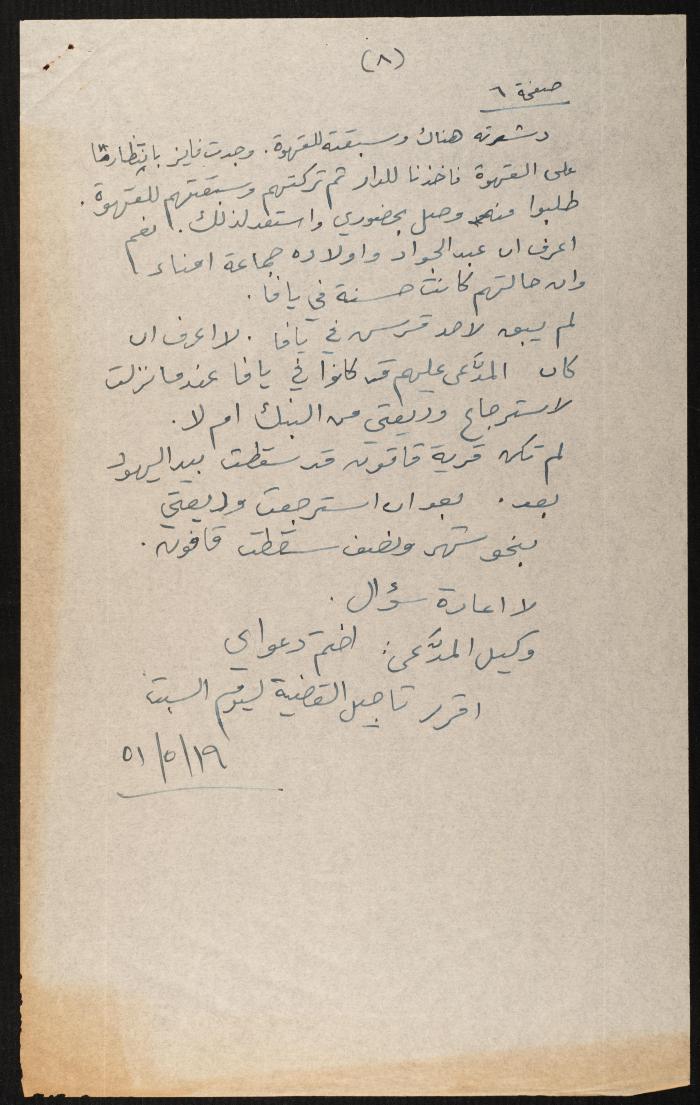 (٨)
صفحة ٦
هناك وسبقته للقهوة. وجدت فايز بانتظارها
على القهوة فاخذنا للدار ثم تركتهم وسبقتهم للقهوة.
طلبوا منه وصل بحضوري واستعد لذلك. نعم
اعرف ان عبد الجواد واولاده جماعة امناء
وان حالتهم كانت حسنة في يافا.
لم يبق لاحد قرش في يافا. لا اعرف ان
كان المدّعى عليهم قد كانوا في يافا عندما نزلت
لاسترجاع وديعتي من البنك ام لا.
لم تكن قرية قاقون قد سقطت بيد اليهود
بعد. بعد ان استرجعت وديعتي
بنحو شهر ونصف سقطت قاقون.
لا اعادة سؤال.
وكيل المدّعى: اختم دعواي
اقرر تاجيل القضية ليوم السبت
٥١/٥/١٩